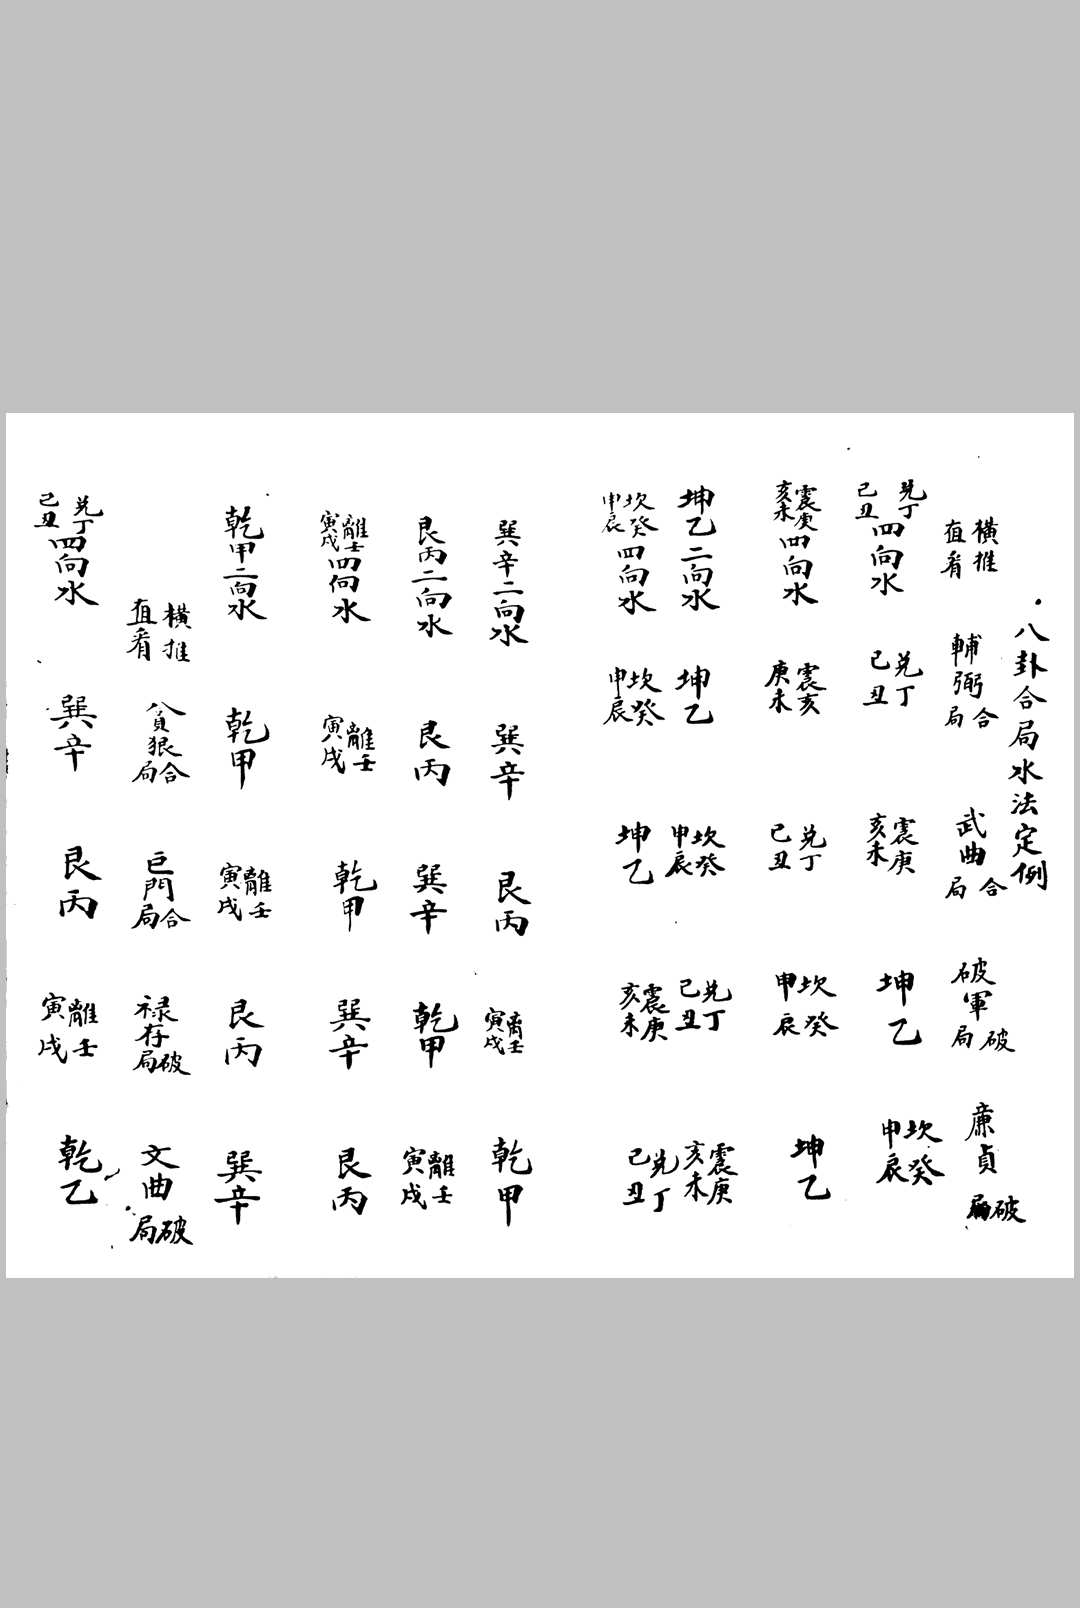 八卦合局水法定例
橫推直看 輔弼合局 武曲合局 破軍破局 廉貞破局
兑丁己丑四向水 兑丁己丑 震庚亥未 坤乙 坎癸申辰
震庚亥未四向水 震亥庚未 兑丁己丑 坎癸申辰 坤乙
坤乙二向水 坤乙 坎癸申辰 兑丁己丑 震庚亥未
坎癸申辰四向水 坎癸申辰 坤乙 震庚亥未 兑丁己丑
巽辛二向水 巽辛 艮丙 离壬寅戌 乾甲
艮丙二向水 艮丙 巽辛 乾甲 離壬寅戌
離壬寅戌四向水 離壬寅戌 乾甲 巽辛 艮丙
乾甲二向水 乾甲 離壬寅戌 艮丙 巽辛
橫推直看 貪狠合局 巨門合局 禄存破局 文曲破局
兑丁己丑四向水 巽辛 艮丙 離壬寅戌 乾乙